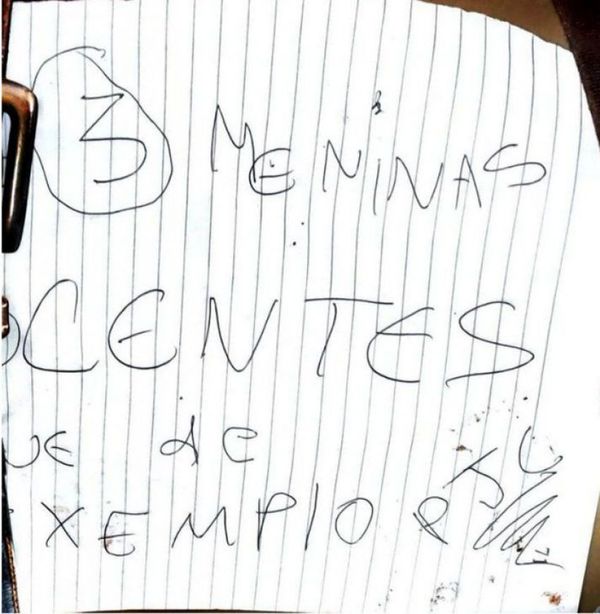 3 MENINAS
OCENTES
UE de
EXEMPlO P